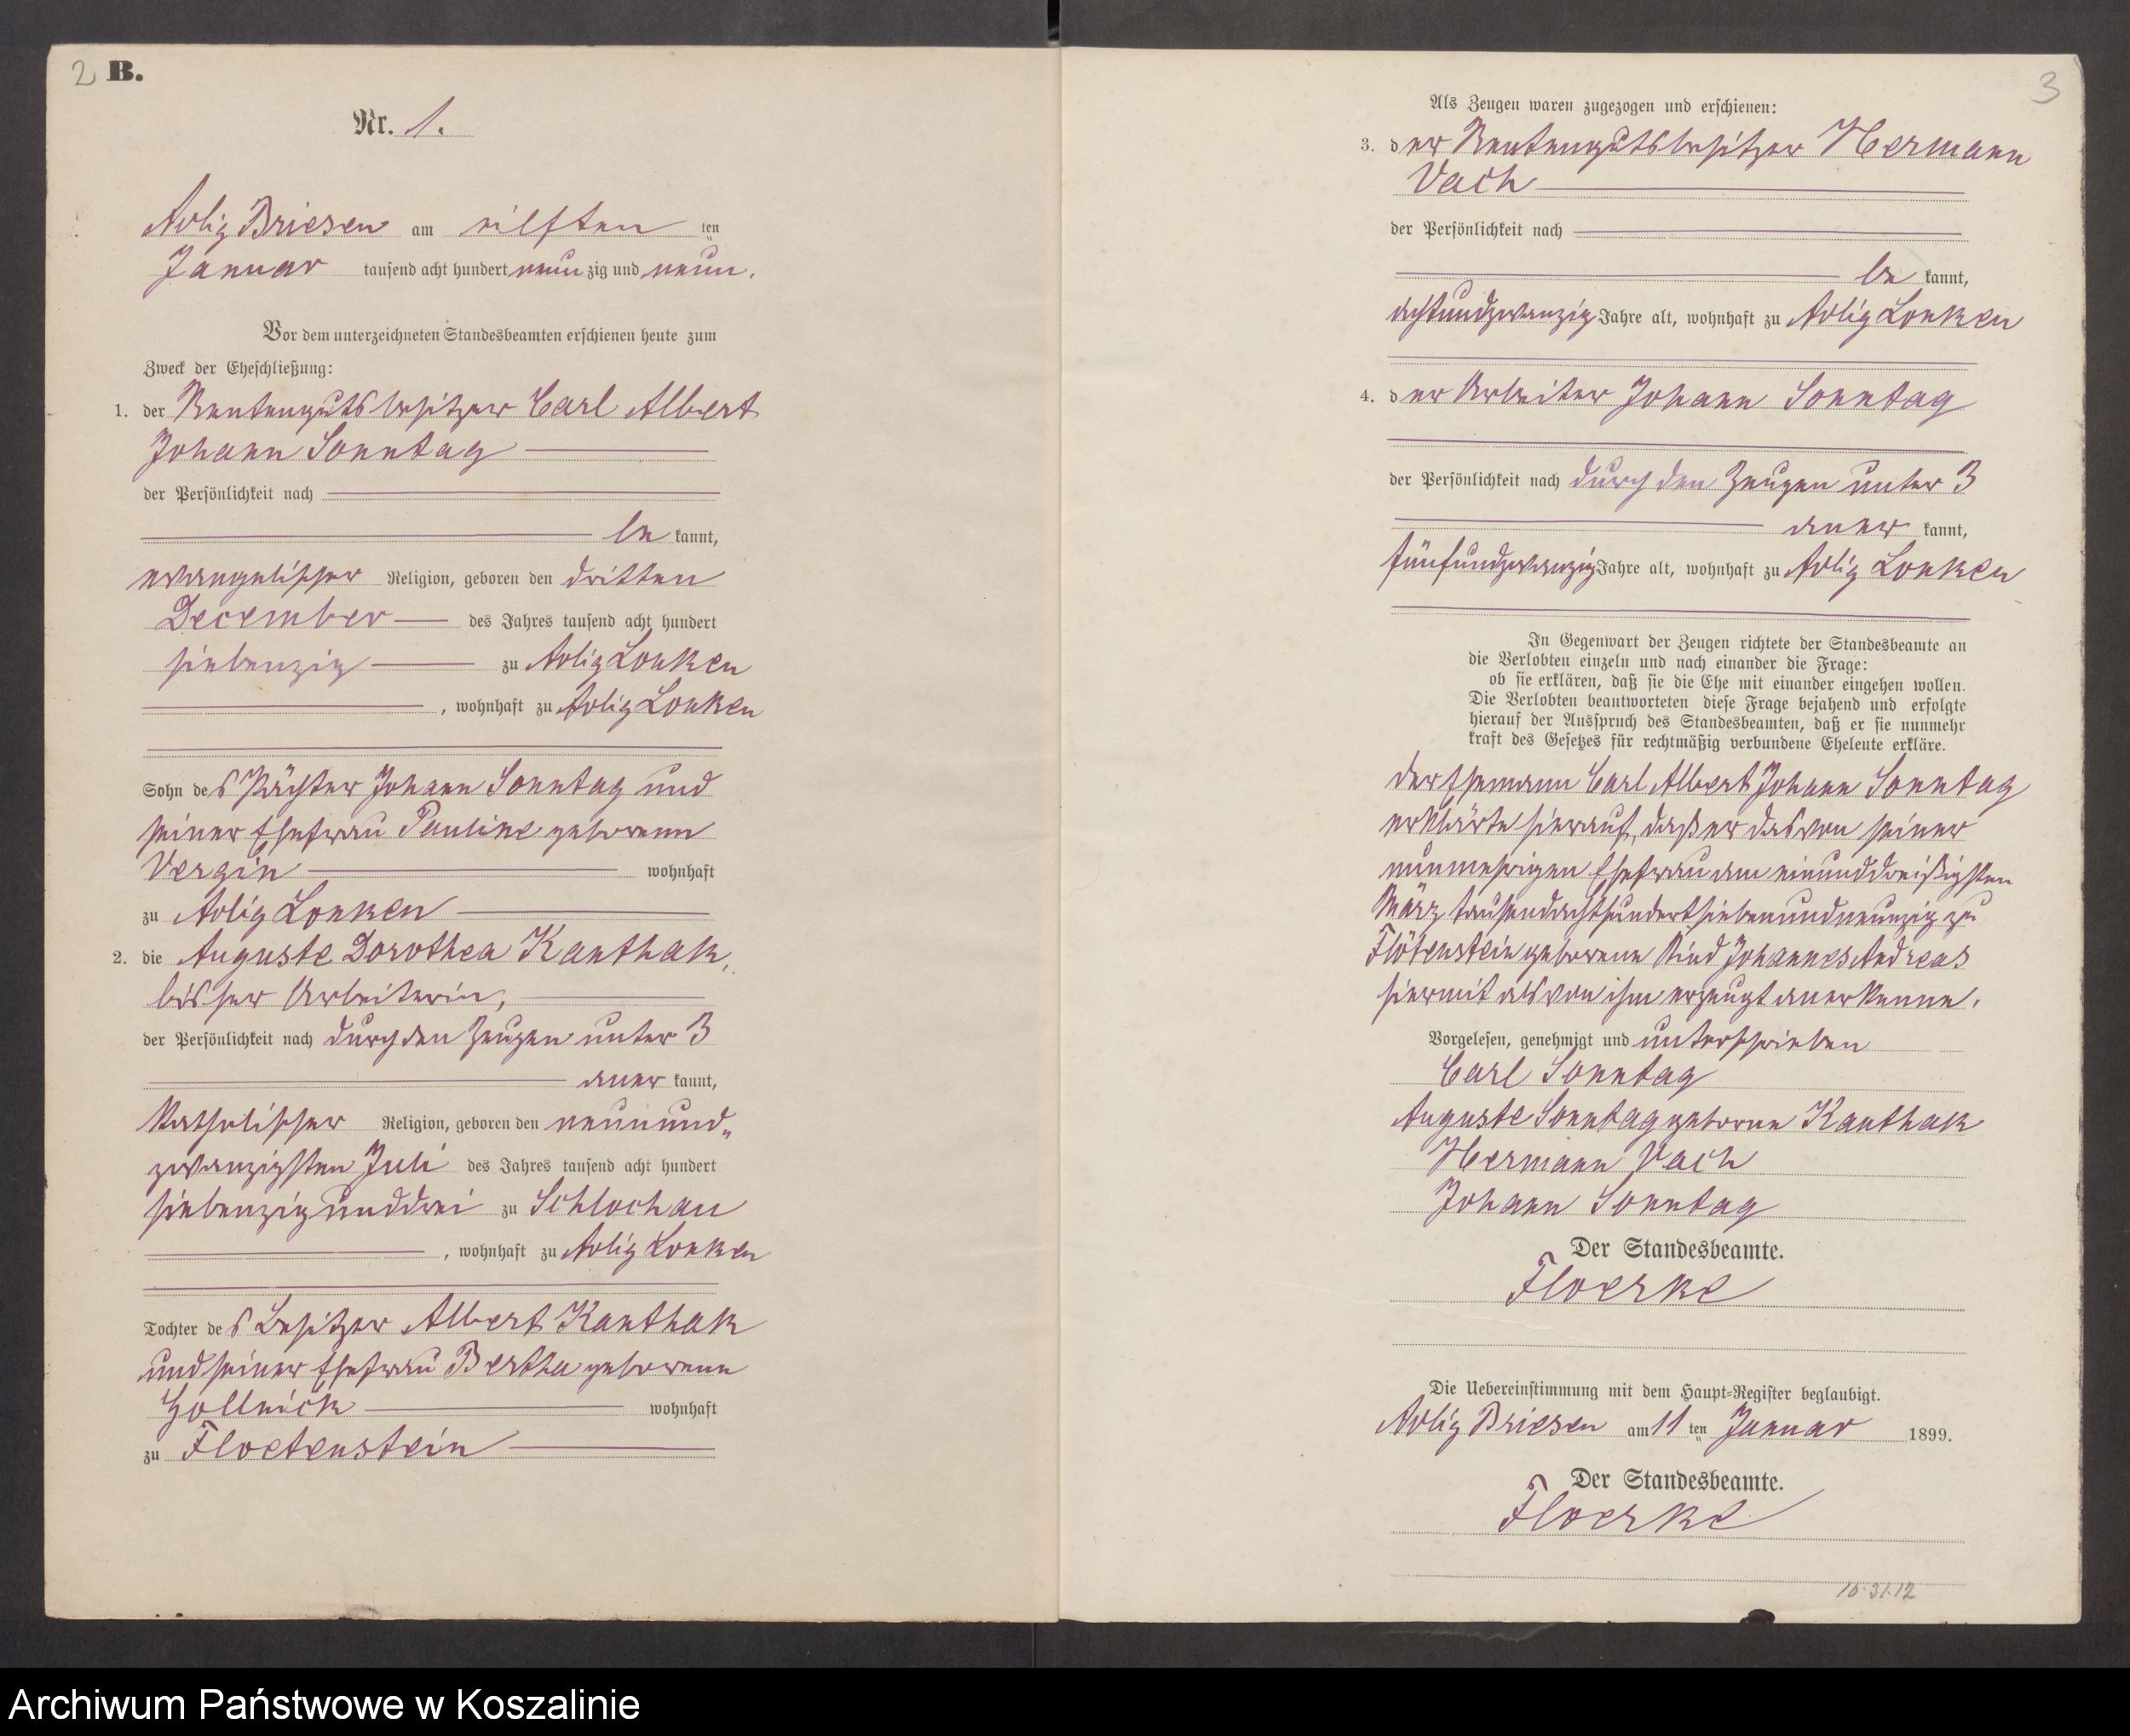 2 B.
Nr. 1.
Adlig Briesen am eilften ten
Januar tausend acht hundert neun zig und neun.
Vor dem unterzeichneten Standesbeamten erschienen heute zum
Zweck der Eheschließung:
1. der Rentengutsbesitzer Carl Albert
Johann Sonntag
der Persönlichkeit nach
be kannt,
evangelischer Religion, geboren den dritten
December des Jahres tausend acht hundert
siebenzig zu Adlig Lonken
, wohnhaft zu Adlig Lonken
Sohn des Pächter Johann Sonntag und
seiner Ehefrau Pauline geborenen
Vergin wohnhaft
zu Adlig Lonken
2. die Auguste Dorothea Kanthak,
bisher Arbeiterin,
der Persönlichkeit nach durch den Zeugen unter 3
aner kannt,
katholischer Religion, geboren den neunund„
zwanzigsten Juli des Jahres tausend acht hundert
siebenzig und drei zu Schlochau
, wohnhaft zu Adlig Lonken
Tochter des Besitzer Albert Kanthak
und seiner Ehefrau Bertha geborenen
Gollnick wohnhaft
zu Floetenstein
3
Als Zeugen waren zugezogen und erschienen:
3. der Rentengutsbesitzer Hermann
Vach
der Persönlichkeit nach
be kannt,
achtundzwanzig Jahre alt, wohnhaft zu Adlig Lonken
4. der Arbeiter Johann Sonntag
der Persönlichkeit nach durch den Zeugen unter 3
aner kannt,
fünfundzwanzig Jahre alt, wohnhaft zu Adlig Lonken
In Gegenwart der Zeugen richtete der Standesbeamte an
die Verlobten einzeln und nach einander die Frage:
ob sie erklären, daß sie die Ehe mit einander eingehen wollen.
Die Verlobten beantworteten diese Frage bejahend und erfolgte
hierauf der Ausspruch des Standesbeamten, daß er sie nunmehr
kraft des Gesetzes für rechtmäßig verbundene Eheleute erkläre.
der Ehemann Carl Albert Johann Sonntag
erklärte hierauf, daß er das von seiner
nunmehrigen Ehefrau am einunddreißigsten
März tausendachthundertsiebenundneunzig zu
Flötenstein geborene Kind Johannes Andreas
hiermit als von ihm erzeugt anerkenne.
Vorgelesen, genehmigt und unterschrieben
Carl Sonntag
Auguste Sonntag geborne Kanthak
Hermann Vach
Johann Sonntag
Der Standesbeamte.
Floerke
Die Uebereinstimmung mit dem Haupt-Register beglaubigt.
Adlig Briesen am 11 ten Januar 1899.
Der Standesbeamte.
Floerke
Archiwum Państwowe w Koszalinie